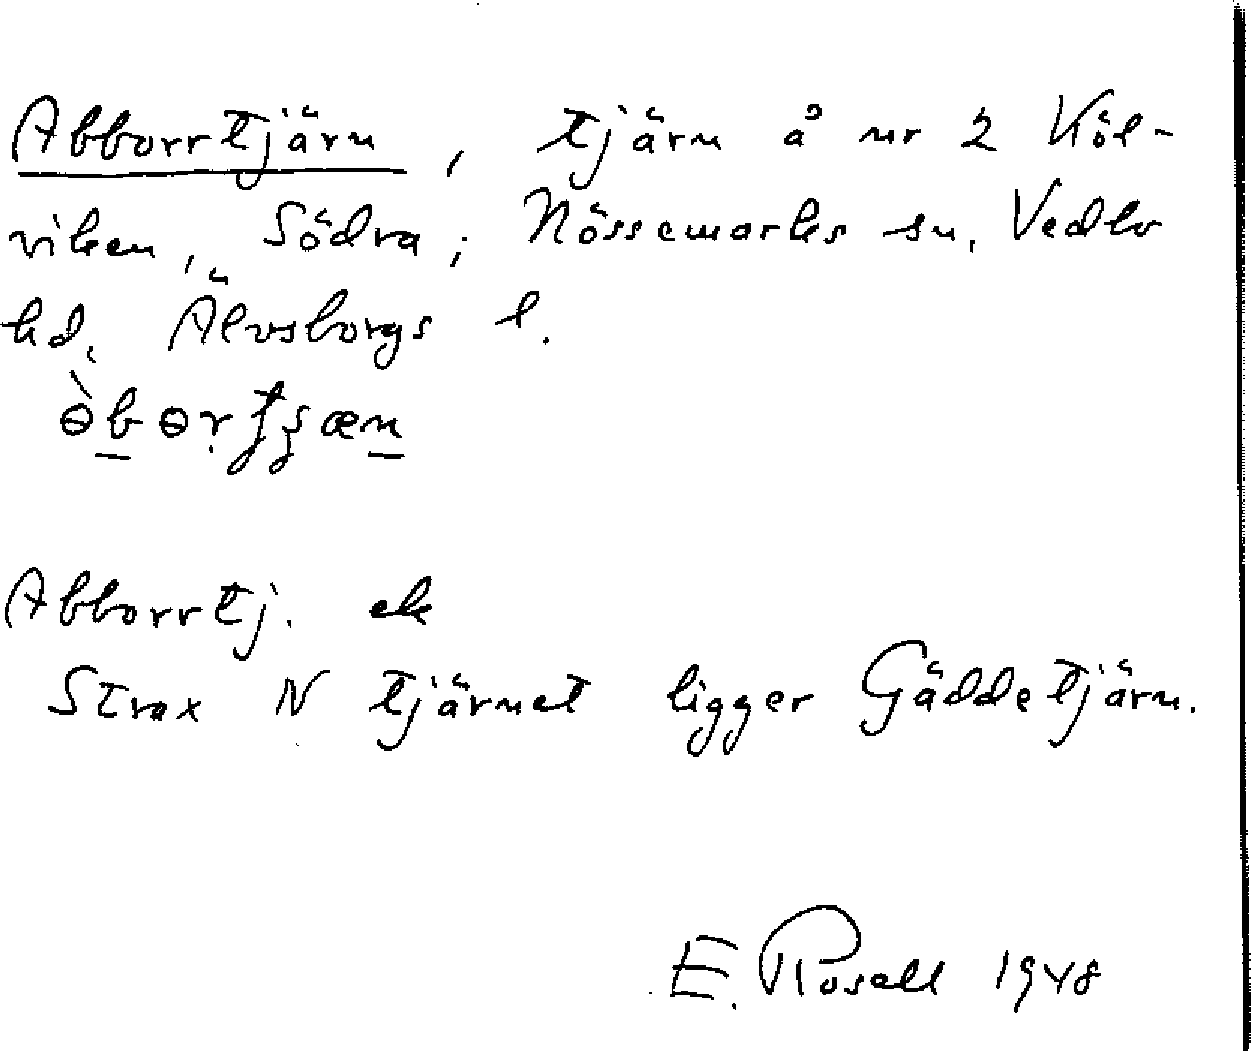 Abborrtjärn, tjärn å nr 2 Köl-
viken, Södra; Nössemarks sn. Vedbo
hd, Älvsborgs l.
Abborrtj. ek
Strax N tjärnet ligger Gäddetjärn.
E. Rosell 1948